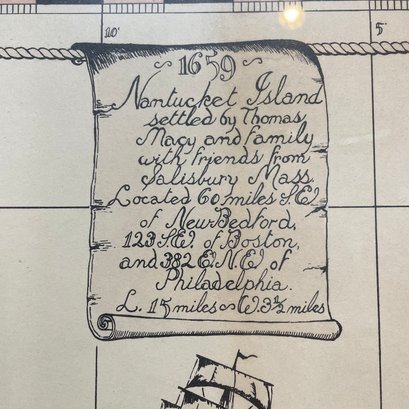 10'
5'
~ 1659 ~
Nantucket Island
settled by Thomas
Macy and family
with friends from
Salisbury Mass.
Located 60 miles S.E.
of New Bedford,
123 S.E. of Boston,
and 382 E.N.E. of
Philadelphia.
L. 15 miles ∾ W. 3½ miles